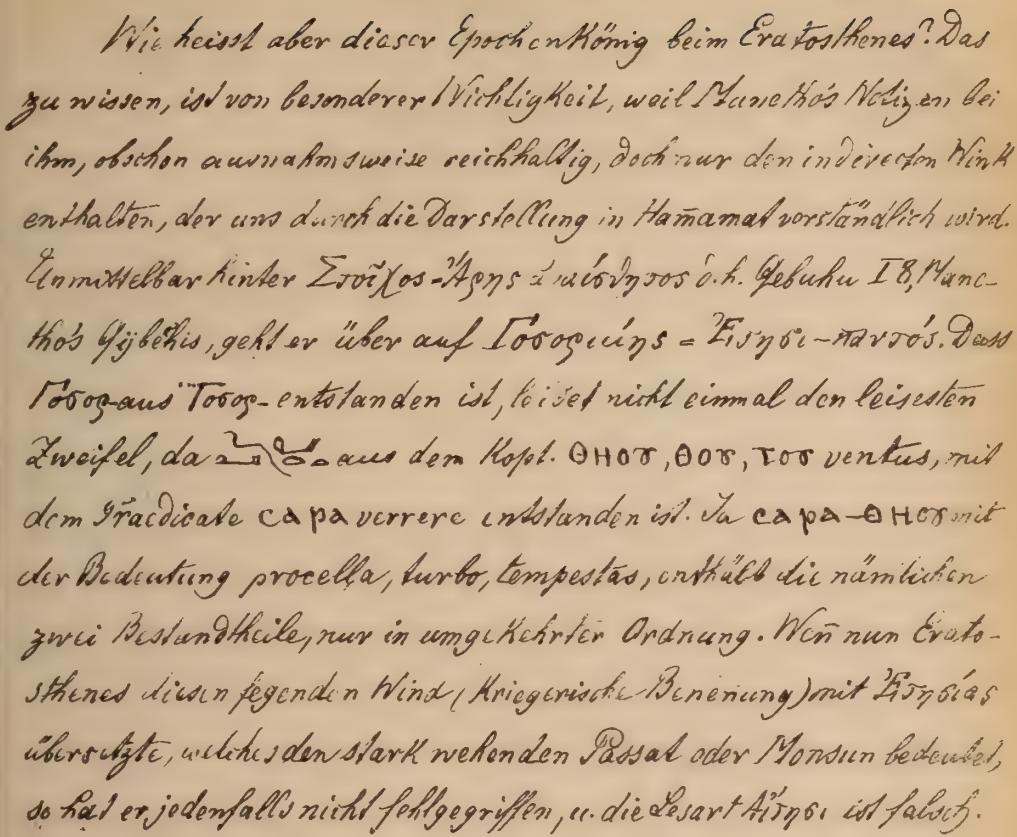 Wie heisst aber dieser Epochenkönig beim Eratosthenes? Das
zu wissen, ist von besonderer Wichtigkeit, weil Manetho's Notizen bei
ihm, obschon ausnahmsweise reichhaltig, doch nur den indirecten Wink
enthalten, der uns durch die Darstellung in Ham̄amat verständlich wird.
Unmittelbar hinter Στοῖχος-Ἄρης ἀναίσθητος d. h. Gebuhu I 8, Mane-
tho's , geht er über auf Γόσορμίης = Ἐτησι-παντός. Dass
Γόσορ- aus Τοσορ- entstanden ist, leidet nicht einmal den leisesten
Zweifel, da aus dem Kopt. ⲑⲏⲟⲩ, ⲑⲟⲩ, ⲧⲟⲩ ventus, mit
dem Praedicate ⲥⲁⲣⲁ verrere entstanden ist. Ja ⲥⲁⲣⲁ-ⲑⲏⲟⲩ mit
der Bedeutung procella, turbo, tempestas, enthält die nämlichen
zwei Bestandtheile, nur in umgekehrter Ordnung. Wen̄ nun Erato-
sthenes diesen fegenden Wind (Kriegerische Benen̄ung) mit Ἐτησίας
übersetzte, welches den stark wehenden Passat oder Monsun bedeutet,
so hat er jedenfalls nicht fehlgegriffen, u. die Lesart Αἴτησι ist falsch.